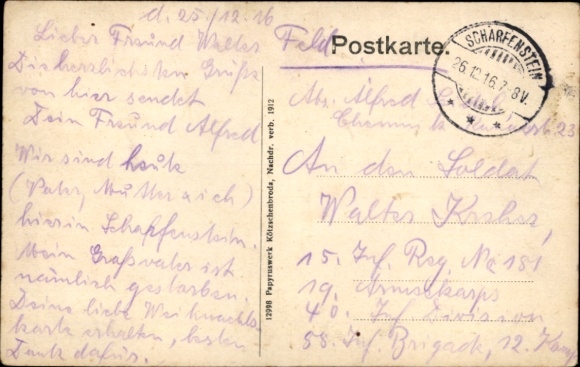 d. 25./12.16
Lieber Freund Walter
Die herzlichsten Grüße
von hier sendet
Dein Freund Alfred
Wir sind heute
(Vater, Mutter & ich)
hier in Scharfenstein.
Mein Großvater ist
nämlich gestorben.
Deine liebe Weihnachts-
karte erhalten, besten
Dank dafür.
12998 Papyruswerk Kötzschenbroda, Nachdr. verb. 1912
Feldpostkarte.
SCHARFENSTEIN
26.12.16.7-8V.
Abs. Alfred
Chemnitz, 23
An den Soldat
Walter
15. Inf. Reg. No 181
19. Armeekorps
40. Inf. Division
58. Inf. Brigade, 12. Komp